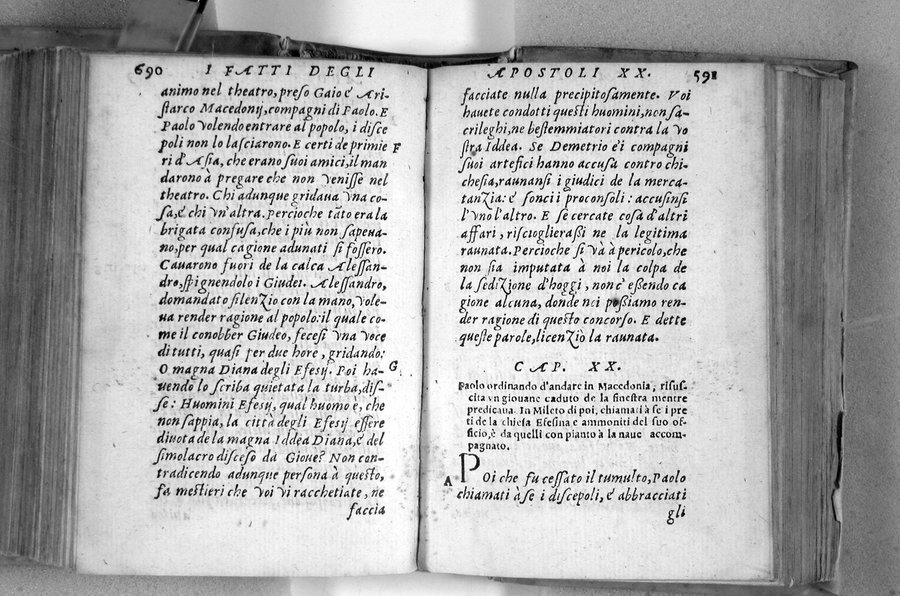 690 I FATTI DEGLI
animo nel theatro, preso Gaio é Ari-
starco Macedonij, compagni di Paolo. E
Paolo volendo entrare al popolo, i disce
poli non lo lasciarono. E certi de primie F
ri d'Asia, che erano suoi amici, il man
darono à pregare che non venisse nel
theatro. Chi adunque gridaua vna co-
sa, é chi vn'altra. Percioche tāto era la
brigata confusa, che i più non sapeua-
no, per qual cagione adunati si fossero.
Cauarono fuori de la calca Alessan-
dro, spignendolo i Giudei. Alessandro,
domandato silenzio con la mano, vole-
ua render ragione al popolo: il quale co-
me il conobber Giudeo, fecesi vna voce
di tutti, quasi per due hore, gridando:
O magna Diana degli Efesij. Poi ha- G
uendo lo scriba quietata la turba, dis-
se: Huomini Efesij, qual huomo e, che
non sappia, la città degli Efesij essere
diuota de la magna Iddea Diana, é del
simolacro disceso da Gioue? Non con-
tradicendo adunque persona à questo,
fa mestieri che voi vi racchetiate, ne
faccia
APOSTOLI XX. 591
facciate nulla precipitosamente. Voi
hauete condotti questi huomini, non sa-
crileghi, ne bestemmiatori contra la vo
stra Iddea. Se Demetrio e'i compagni
suoi artefici hanno accusa contro chi-
chesia, raunansi i giudici de la merca-
tanzia: é fonci i proconsoli: accusinsi
l'vno l'altro. E se cercate cosa d'altri
affari, riscioglieraßi ne la legitima
raunata. Percioche si và à pericolo, che
non sia imputata à noi la colpa de
la sedizione d'hoggi, non c'eßendo ca
gione alcuna, donde noi poßiamo ren-
der ragione di questo concorso. E dette
queste parole, licenziò la raunata.
CAP. XX.
Paolo ordinando d'andare in Macedonia, risus
cita vn giouane caduto de la finestra mentre
predicaua. In Mileto di poi, chiamati à se i pre
ti de la chiesa Efesina e ammoniti del suo of-
ficio, è da quelli con pianto à la naue accom-
pagnato.
A Poi che fu cessato il tumulto, Paolo
chiamati à se i discepoli, é abbracciati
gli